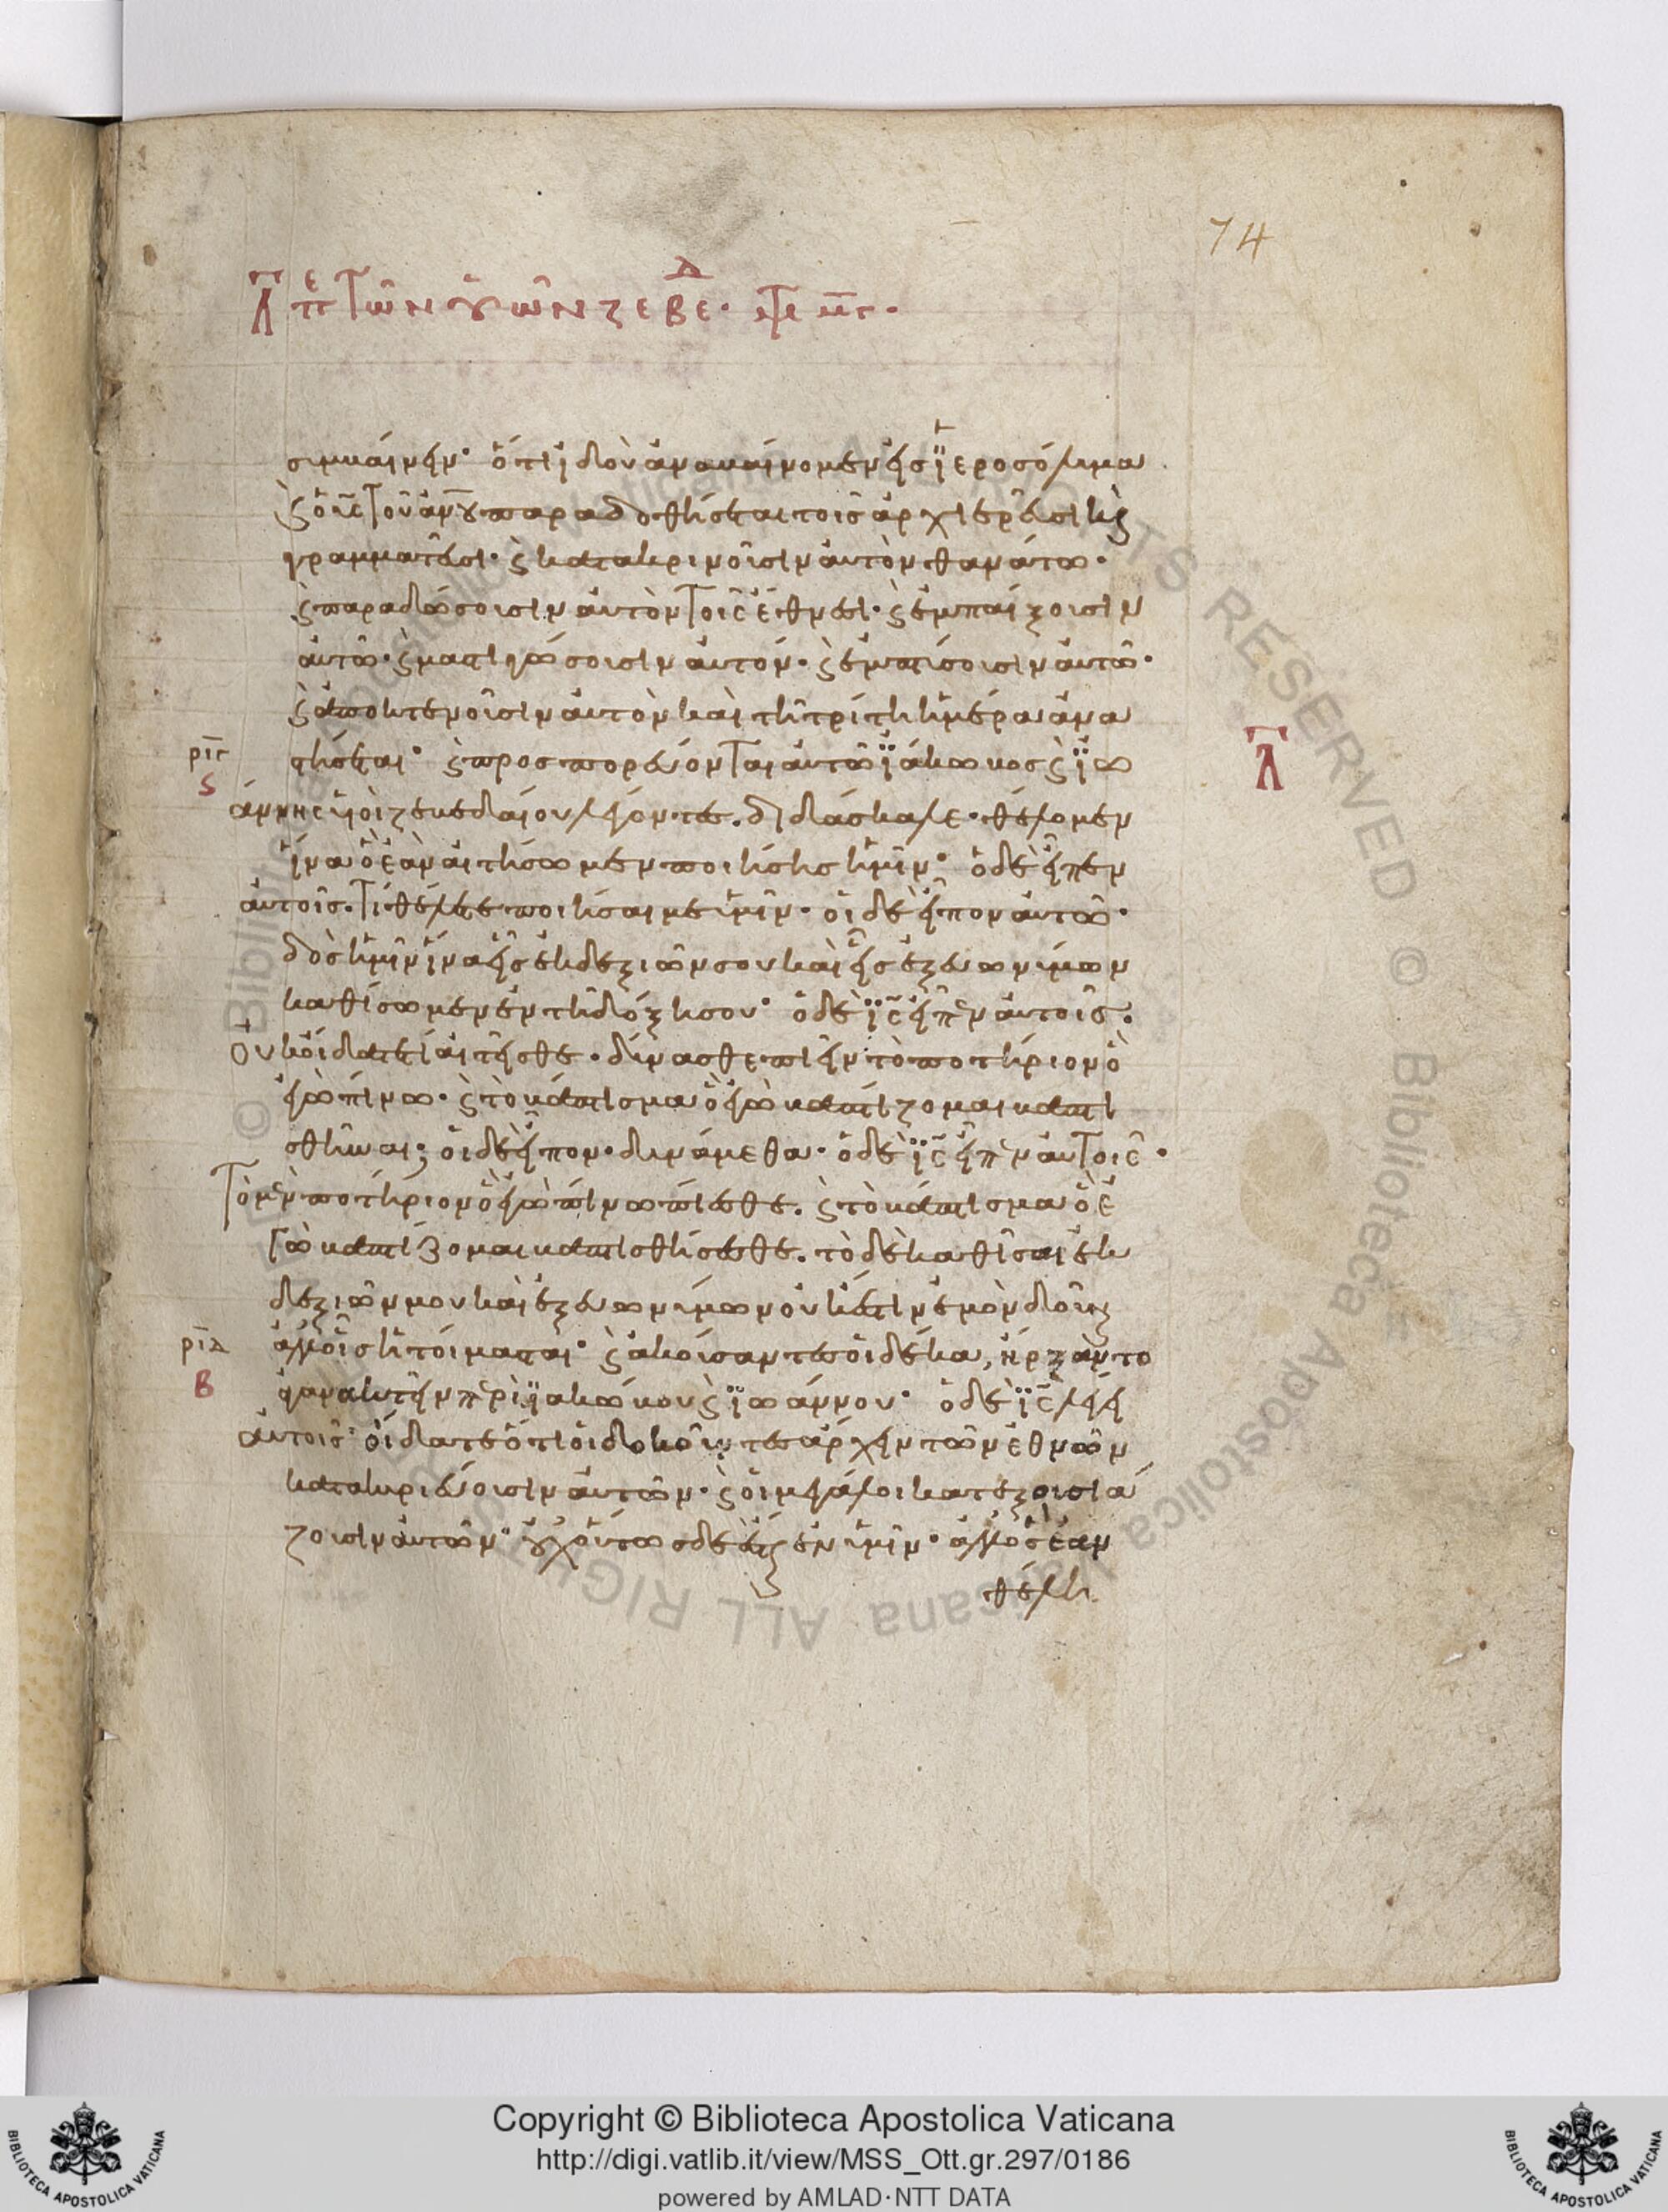 74
λ̄ πε τῶν υἱῶν ζεβεδ. ψε μστ.
συμβαίνειν· ὅτι ἰδοὺ ἀναβαίνομεν εἰς ϊεροσόλυμα
ϛ ὁ υἱὸς τοῦ ἀνου παραδοθήσεται τοῖς ἀρχιερεῦσι κϛ
γραμματεῦσι· ϛ κατακρινοῦσιν αὐτὸν θανάτω·
ϛ παραδώσουσιν αὐτὸν τοῖς ἔθνεσι· ϛ ἐμπαίξουσιν
αὐτῶ· ϛ μαστιγώσουσιν αὐτόν· ϛ ἐμπτύσουσιν αὐτῶ·
ϛ ἀποκτενοῦσιν αὐτὸν καὶ τῆ τρίτη ἡμέρα ἀνα
ριγ στήσεται· ϛ προσπορεύονται αὐτῶ ϊάκωβος ϛ ϊω
ϛ
άννης υἱοὶ ζεβεδαίου λέγοντες. διδάσκαλε· θέλομεν
ἵνα ὃ ἐὰν αἰτήσωμεν ποιήσης ἡμῖν· ὁ δὲ εἶπεν
αὐτοῖς. τί θέλετε ποιῆσαί με ὑμῖν· οἱ δὲ εἶπον αὐτῶ·
δὸς ἡμῖν ἵνα εἷς ἐκ δεξιῶν σου καὶ εἷς ἐξ εὐωνύμων
καθίσωμεν ἐν τῆ δόξη σου· ὁ δὲ ϊς εἶπεν αὐτοῖς.
οὐκ οἴδατε τί αἰτεῖσθε· δύνασθε πιεῖν τὸ ποτήριον ὃ
ἐγὼ πίνω· ϛ τὸ βάπτισμα ὃ ἐγὼ βαπτίζομαι βαπτι
σθῆναι; οἱ δὲ εἶπον· δυνάμεθα· ὁ δὲ ϊς εἶπεν αὐτοῖς·
τὸ μὲν ποτήριον ὃ ἐγὼ πίνω πίεσθε. ϛ τὸ βάπτισμα ὃ ἐ
γὼ βαπτίζομαι βαπτισθήσεσθε. τὸ δὲ καθίσαι ἐκ
δεξιῶν μου καὶ ἐξ εὐωνύμων οὐκ ἔστιν ἐμὸν δοῦν
ριδ ἀλλ' οἷς ἡτοίμασται· ϛ ἀκούσαντες οἱ δέκα, ἤρξαντο
β ἀγανακτεῖν περὶ ϊακώβου ϛ ϊωάννου· ὁ δὲ ϊς λέγει
αὐτοῖς· οἴδατε ὅτι οἱ δοκοῦντες ἄρχειν τῶν ἐθνῶν
κατακυριεύουσιν αὐτῶν· ϛ οἱ μεγάλοι κατεξουσιά
ζουσιν αὐτῶν· οὐχ οὕτως δὲ ἔσται ἐν ὑμῖν· ἀλλ' ὃς ἐὰν
θέλη
Copyright © Biblioteca Apostolica Vaticana
http://digi.vatlib.it/view/MSS_Ott.gr.297/0186
powered by AMLAD·NTT DATA
BIBLIOTECA APOSTOLICA VATICANA
BIBLIOTECA APOSTOLICA VATICANA